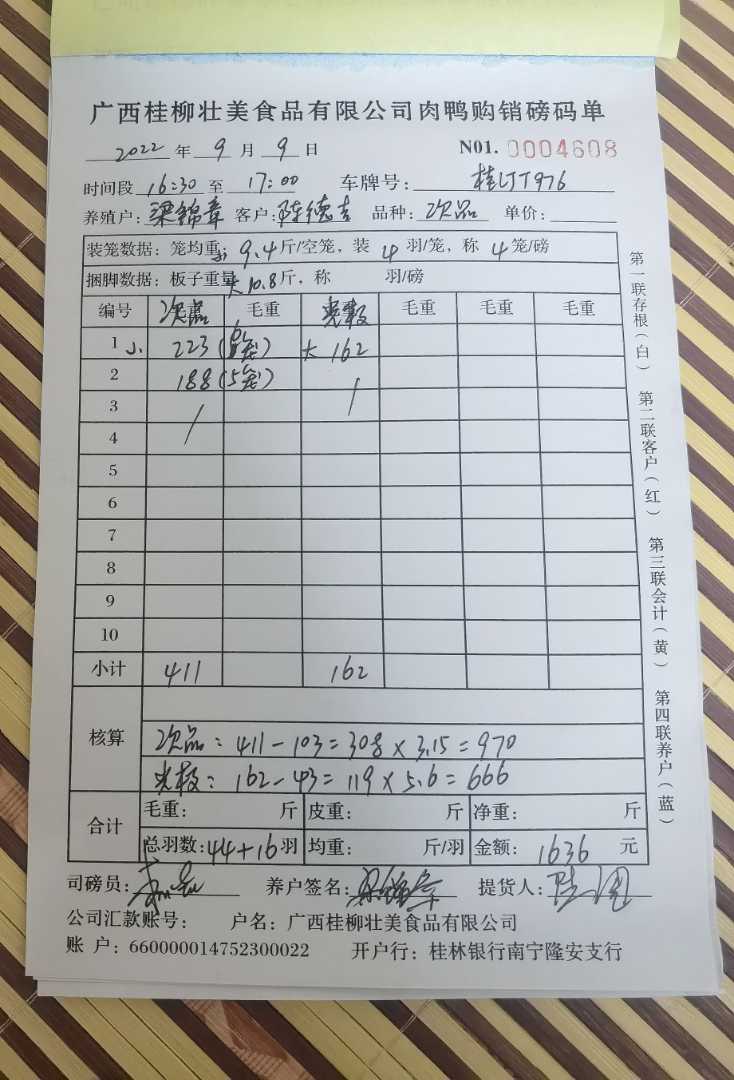 广西桂柳壮美食品有限公司肉鸭购销磅码单
2022 年 9 月 9 日 N01. 0004608
时间段 16:30 至 17:00 车牌号: 976
养殖户: 梁锦章 客户: 陈德吉 品种: 次品 单价:
装笼数据: 笼均重: 小 9.4 斤/空笼, 装 4 羽/笼, 称 4 笼/磅
捆脚数据: 板子重量 大 10.8 斤, 称 羽/磅
编号 次品 毛重 毛重 毛重 毛重
1 小 223 (6笼) 大 162
2 188 (5笼) /
3 /
4
5
6
7
8
9
10
小计 411 162
核算
次品: 411-103=308×3.15=970
162-43=119×5.6=666
合计 毛重: 斤 皮重: 斤 净重: 斤
总羽数: 44+16 羽 均重: 斤/羽 金额: 1636 元
司磅员: 养户签名: 梁锦章 提货人:
公司汇款账号: 户名: 广西桂柳壮美食品有限公司
账 户: 660000014752300022 开户行: 桂林银行南宁隆安支行
第一联存根(白) 第二联客户(红) 第三联会计(黄) 第四联养户(蓝)